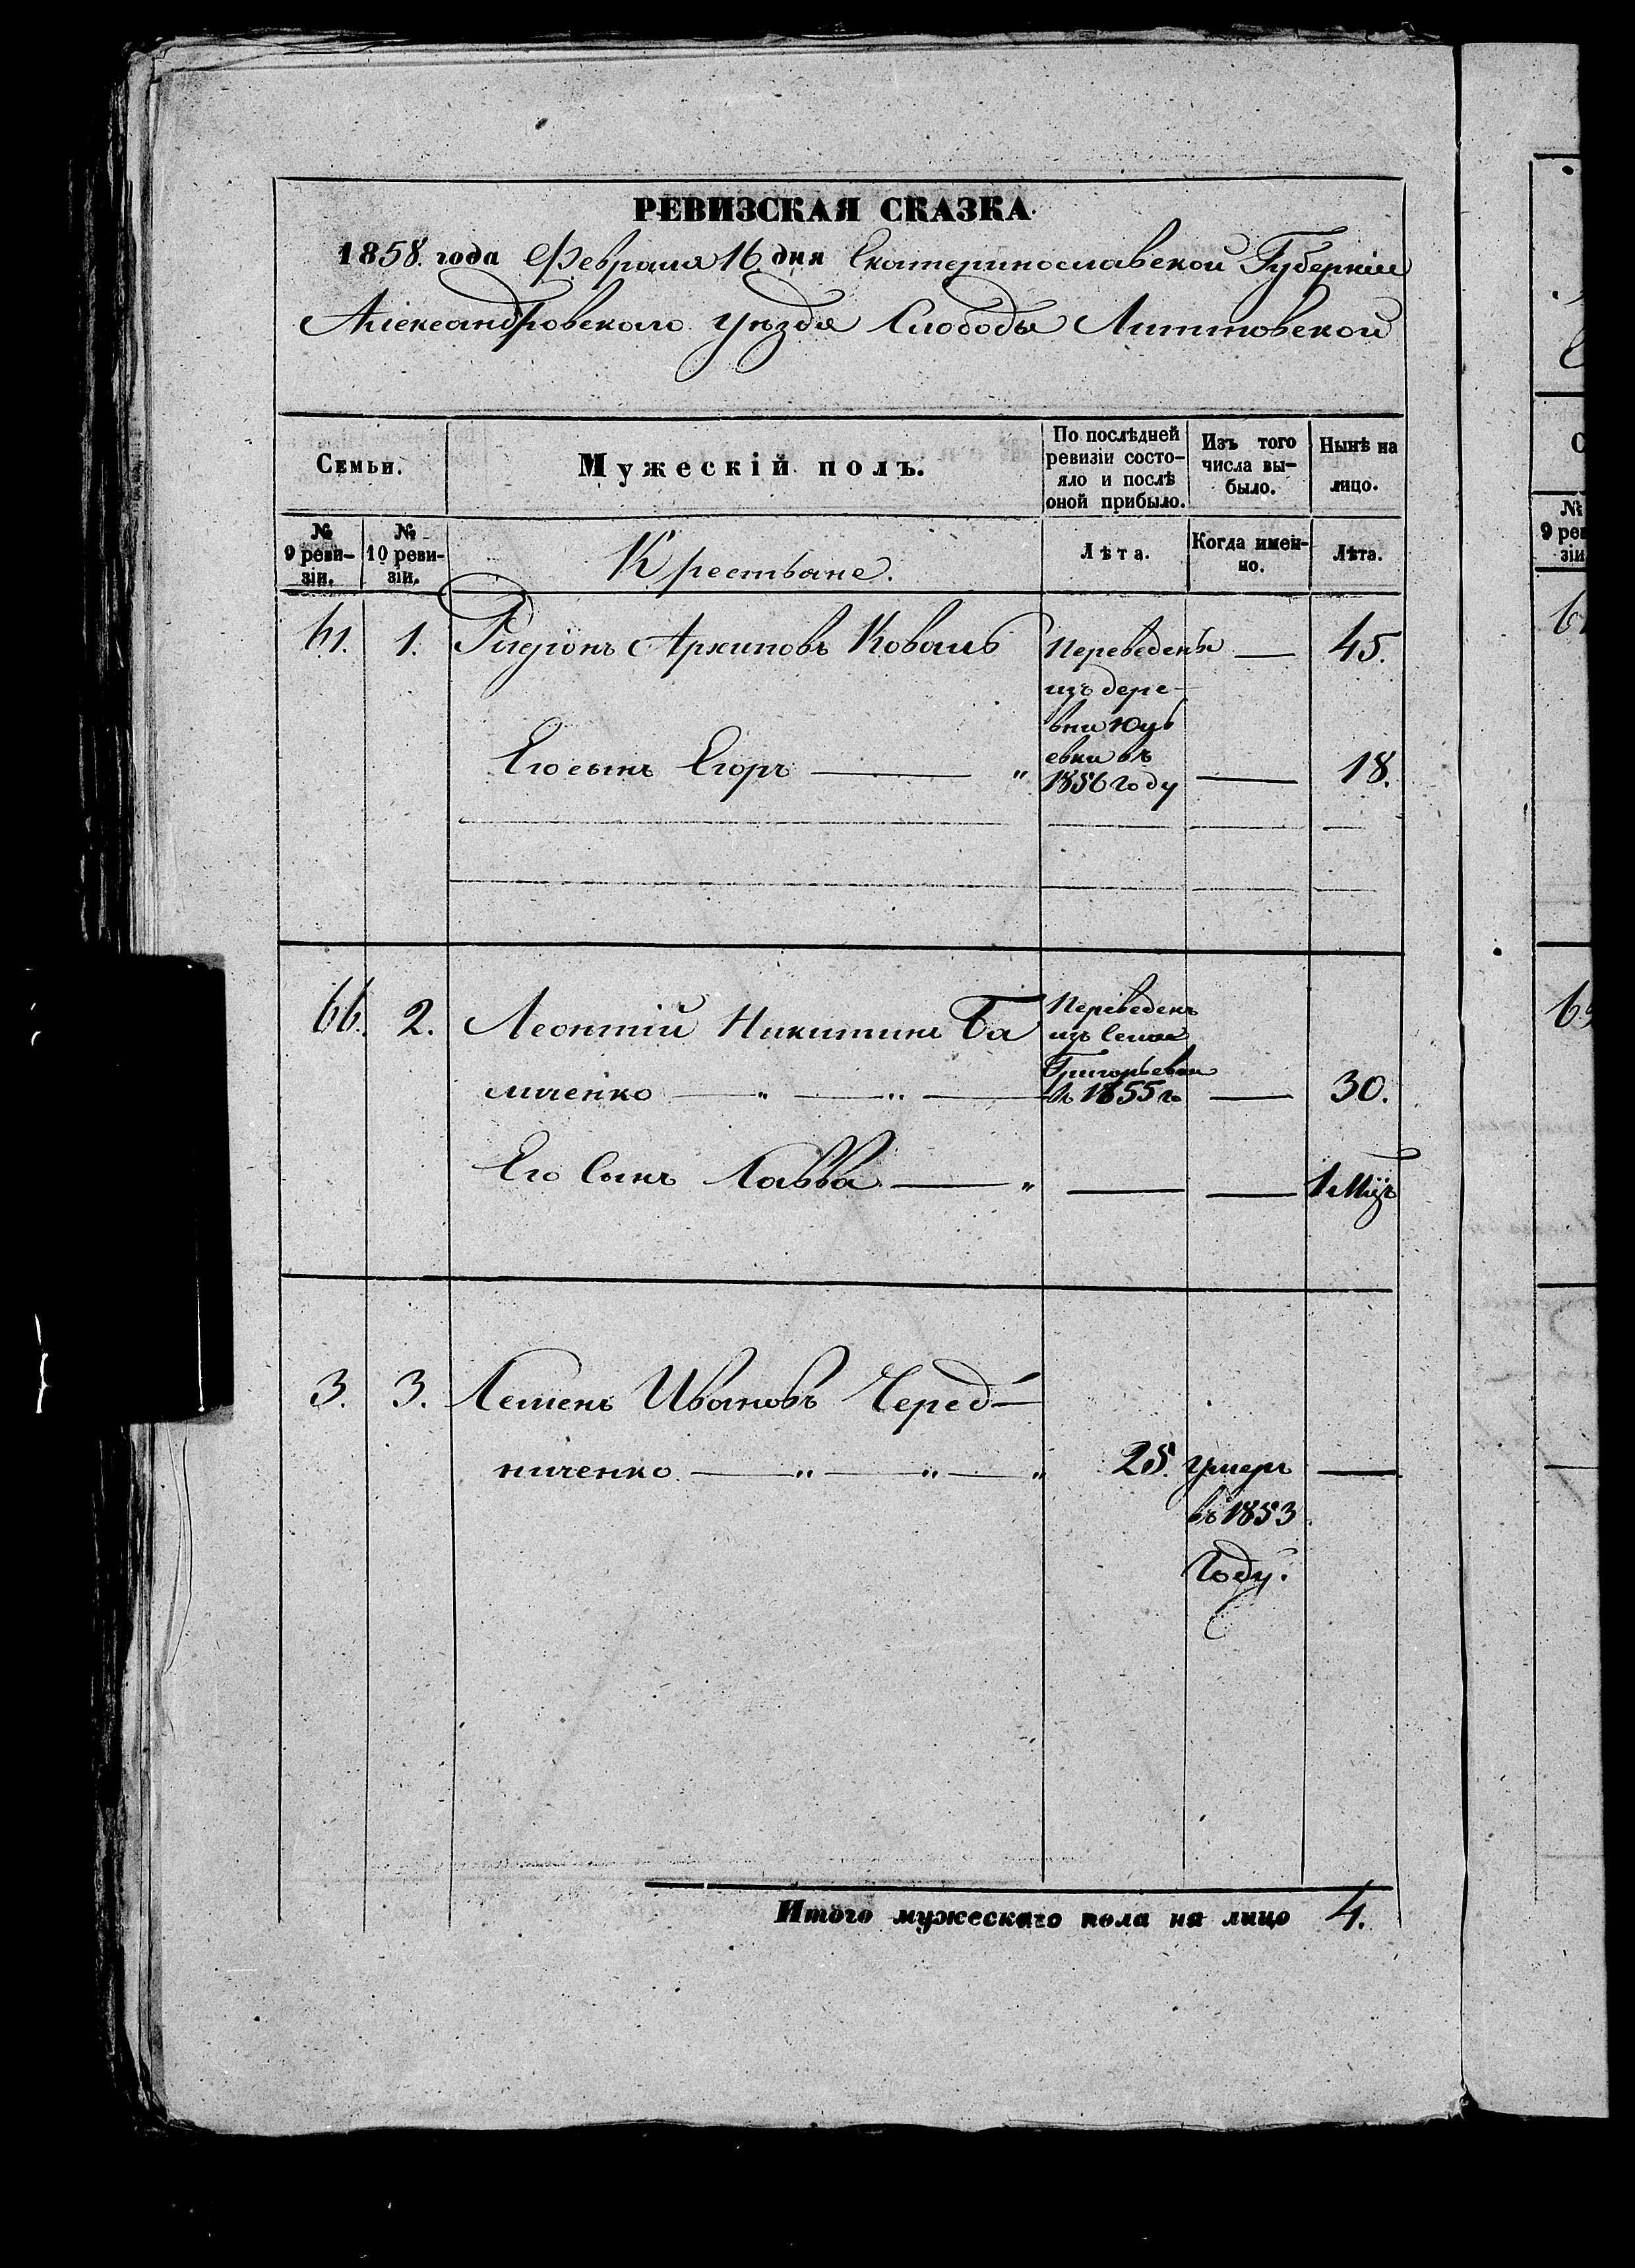 РЕВИЗСКАЯ СКАЗКА
1858 года Февраля 16 дня Екатеринославской Губерніи
Александровскаго уѣзда Слободы
Семьи.
Мужескій полъ.
По послѣдней ревизіи состо-
яло и послѣ
оной прибыло.
Изъ того
числа вы-
было.
Нынѣ на
лицо.
№
9 реви-
зіи.
№
10 реви-
зіи.
Крестьяне.
Лѣта.
Когда имен-
но.
Лѣта.
61. 1. Родіонъ Архиповъ Коваль
Переведены
изъ дере-
вни
евки въ
1856 году
— 45.
Его сынъ Егоръ — " — 18.
66. 2. Леонтій Никитинъ Ба
Переведенъ
изъ села
Григорьевки
въ 1855 г
личенко — " — " — — 30.
Его Сынъ Савва — " — — 1 мѣ
3. 3. Семенъ Ивановъ Черед-
ниченко — " — " — " 25. умеръ —
въ 1853
году.
Итого мужескаго пола на лицо 4.